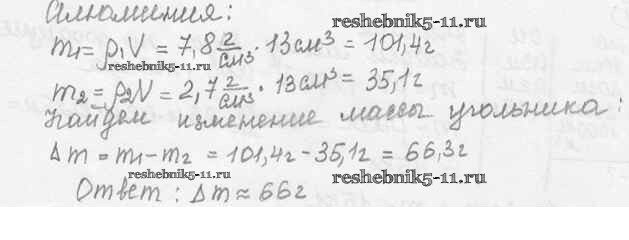 Алюминия:
reshebnik5-11.ru
m₁ = ρ₁V = 7,8 г/см³ · 13 см³ = 101,4 г
reshebnik5-11.ru
m₂ = ρ₂V = 2,7 г/см³ · 13 см³ = 35,1 г
Найдем изменение массы угольника:
Δm = m₁ - m₂ = 101,4 г - 35,1 г = 66,3 г
reshebnik5-11.ru
reshebnik5-11.ru
Ответ: Δm ≈ 66 г